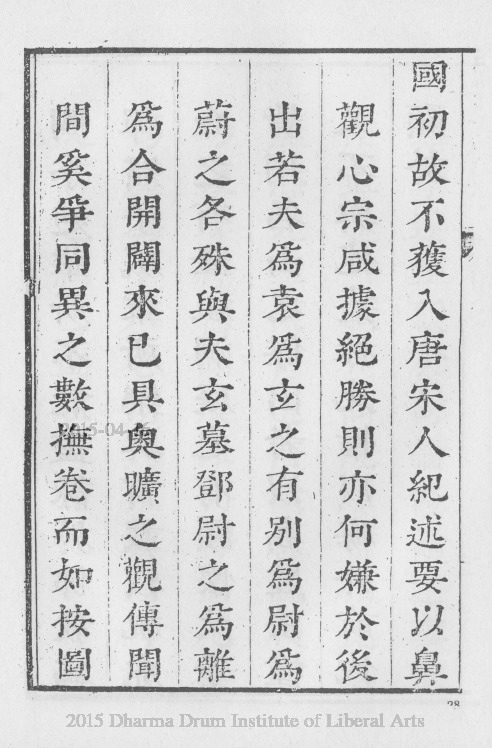 國初故不獲入唐宋人紀述要以鼻
觀心宗咸據絕勝則亦何嫌於後
出若夫爲袁爲玄之有別爲尉爲
蔚之各殊與夫玄墓鄧尉之爲離
爲合開闢來已具奥曠之觀傳聞
間奚爭同異之數撫卷而如按圖
28
2015 Dharma Drum Institute of Liberal Arts